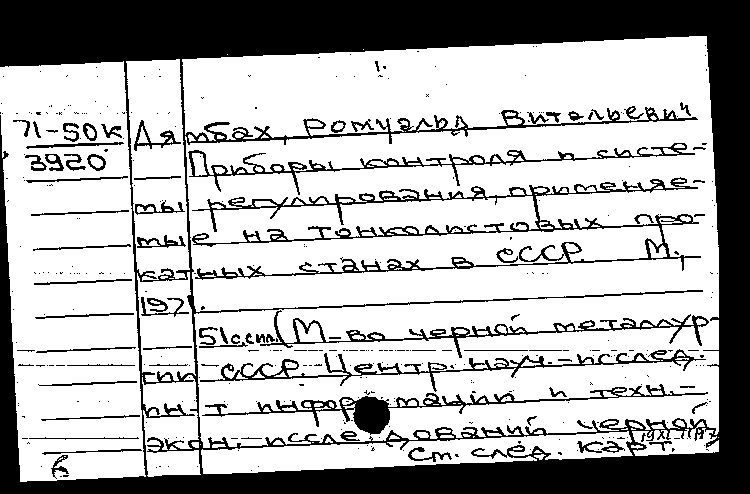 1.
71-50к Лямбах, Ромуальд Витальевич
3920 Приборы контроля и систе-
мы регулирования, применяе-
мые на тонколистовых про-
катных станах в СССР М.,
1971.
51с.сил. (М-во черной металлур-
гии СССР. Центр. науч.-исслед.
ин-т информации и техн.-
экон. исследований черной
6 См. след. карт.